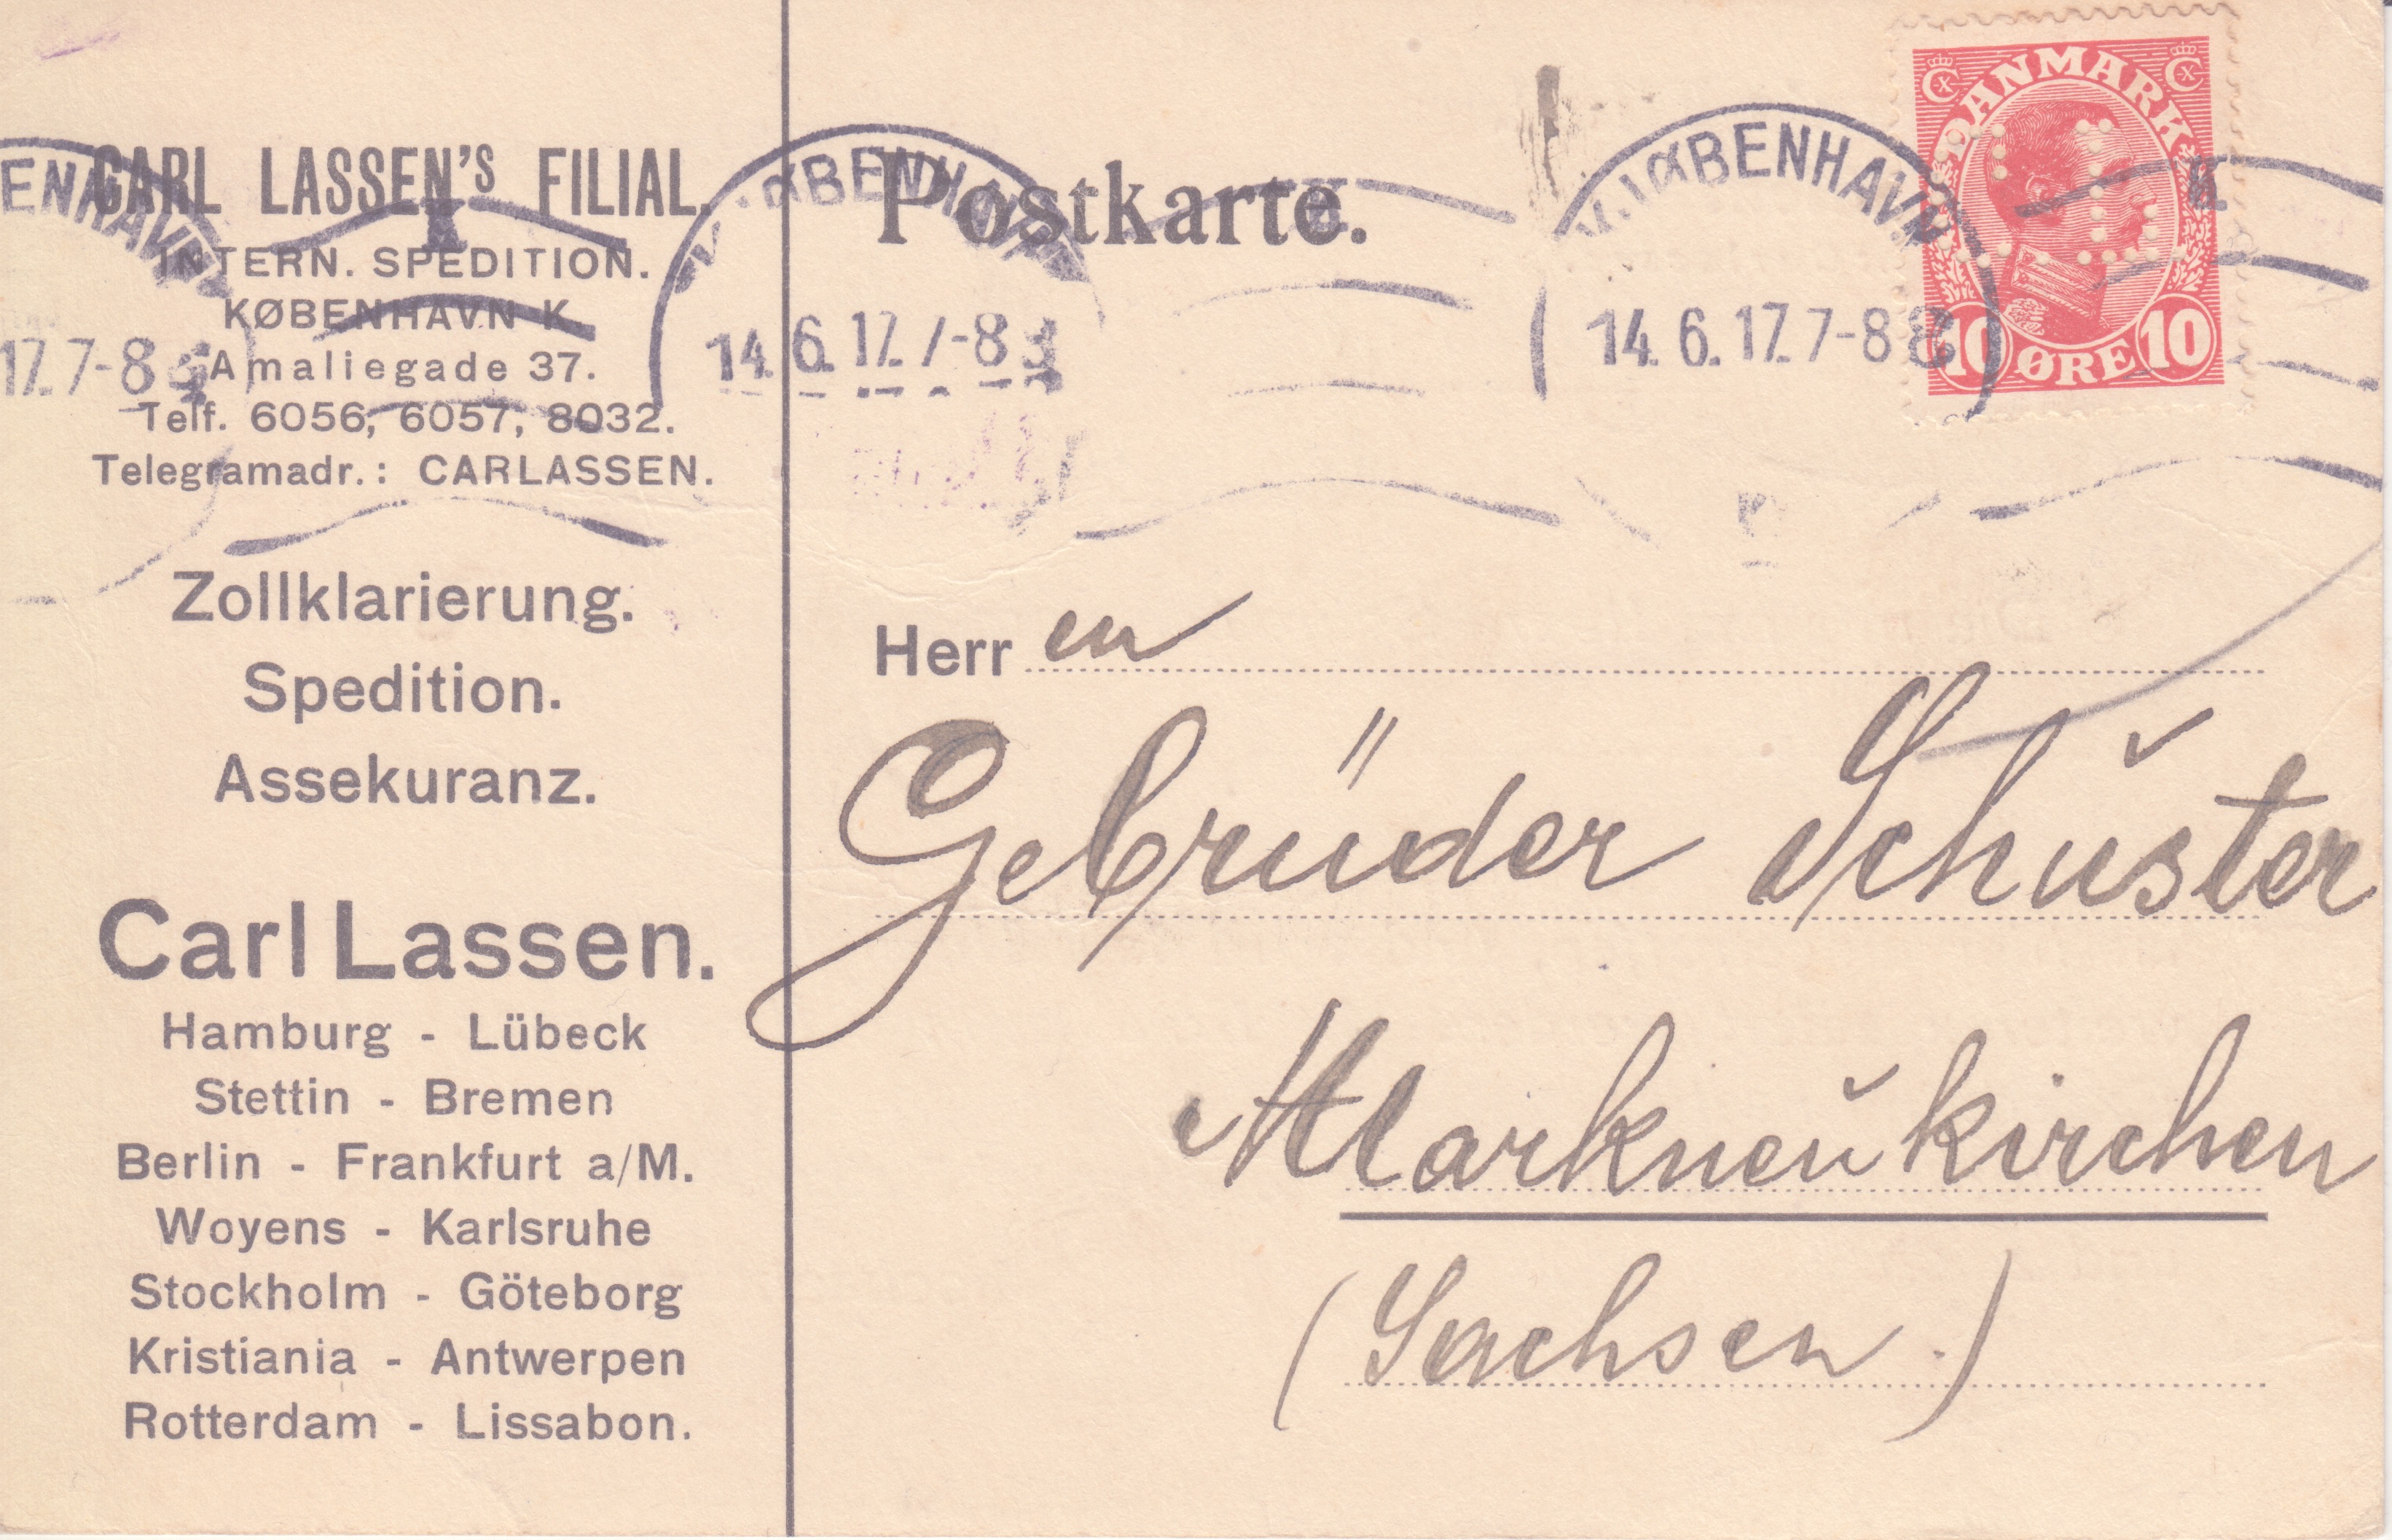 CARL LASSEN'S FILIAL.
INTERN. SPEDITION.
KØBENHAVN K.
Amaliegade 37.
Telf. 6056, 6057, 8032.
Telegramadr.: CARLASSEN.
Zollklarierung.
Spedition.
Assekuranz.
Carl Lassen.
Hamburg - Lübeck
Stettin - Bremen
Berlin - Frankfurt a/M.
Woyens - Karlsruhe
Stockholm - Göteborg
Kristiania - Antwerpen
Rotterdam - Lissabon.
Postkarte.
ENHAVN
K
17. 7-8
KØBENHAVN
14. 6. 17. 7-8
KØBENHAVN
K
14. 6. 17. 7-8
DANMARK
10 ØRE 10
Herr en
Gebrüder Schuster
Markneukirchen
(Sachsen.)